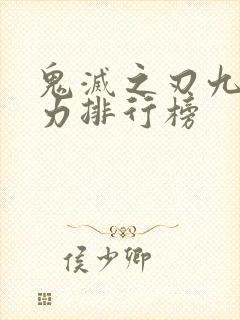 鬼滅之刃九
力排行榜
侯少卿